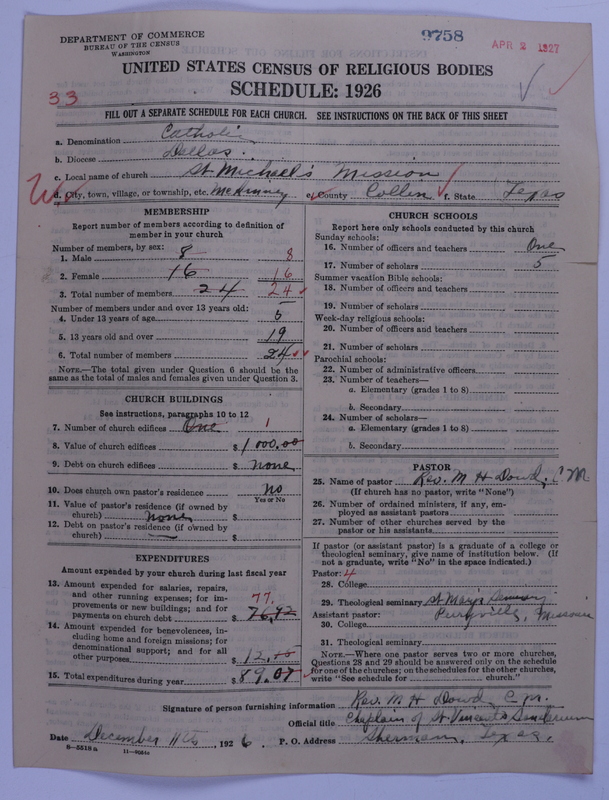 DEPARTMENT OF COMMERCE
BUREAU OF THE CENSUS
WASHINGTON
9758
APR 2 1927
UNITED STATES CENSUS OF RELIGIOUS BODIES
SCHEDULE: 1926
33
FILL OUT A SEPARATE SCHEDULE FOR EACH CHURCH. SEE INSTRUCTIONS ON THE BACK OF THIS SHEET
a. Denomination Catholic
b. Diocese Dallas.
c. Local name of church St Michael's Mission
d. City, town, village, or township, etc. McKinney e. County Collin f. State Texas
MEMBERSHIP
Report number of members according to definition of
member in your church
Number of members, by sex:
1. Male 8 8
2. Female 16 16
3. Total number of members 24 24
Number of members under and over 13 years old:
4. Under 13 years of age 5
5. 13 years old and over 19
6. Total number of members 24
NOTE.—The total given under Question 6 should be the
same as the total of males and females given under Question 3.
CHURCH BUILDINGS
See instructions, paragraphs 10 to 12
7. Number of church edifices One 1
8. Value of church edifices $1000.00
9. Debt on church edifices $ none
10. Does church own pastor's residence No
Yes or No
11. Value of pastor's residence (if owned by
church) none $
12. Debt on pastor's residence (if owned by
church) — $
EXPENDITURES
Amount expended by your church during last fiscal year
13. Amount expended for salaries, repairs,
and other running expenses; for im-
provements or new buildings; and for
payments on church debt $ 76.92
77.
14. Amount expended for benevolences, in-
cluding home and foreign missions; for
denominational support; and for all
other purposes $12.15
15. Total expenditures during year $89.07
CHURCH SCHOOLS
Report here only schools conducted by this church
Sunday schools:
16. Number of officers and teachers One
17. Number of scholars 5
Summer vacation Bible schools:
18. Number of officers and teachers
19. Number of scholars
Week-day religious schools:
20. Number of officers and teachers
21. Number of scholars
Parochial schools:
22. Number of administrative officers
23. Number of teachers—
a. Elementary (grades 1 to 8)
b. Secondary
24. Number of scholars—
a. Elementary (grades 1 to 8)
b. Secondary
PASTOR
25. Name of pastor Rev. M H Dowd, C M
(If church has no pastor, write "None")
26. Number of ordained ministers, if any, em-
ployed as assistant pastors
27. Number of other churches served by the
pastor or his assistants
If pastor (or assistant pastor) is a graduate of a college or
theological seminary, give name of institution below. (If
not a graduate, write "No" in the space indicated.)
Pastor: 4
28. College
29. Theological seminary St Mary's Seminary
Assistant pastor: Perryville, Missouri
30. College
31. Theological seminary
NOTE.—Where one pastor serves two or more churches,
Questions 28 and 29 should be answered only on the schedule
for one of the churches; on the schedules for the other churches,
write "See schedule for church."
Signature of person furnishing information Rev. M H Dowd, C. M.
Official title Chaplain of St Vincent's Sanitarium
Date December 11th, 1926. P. O. Address Sherman, Texas.
8-5518a 11-9054a